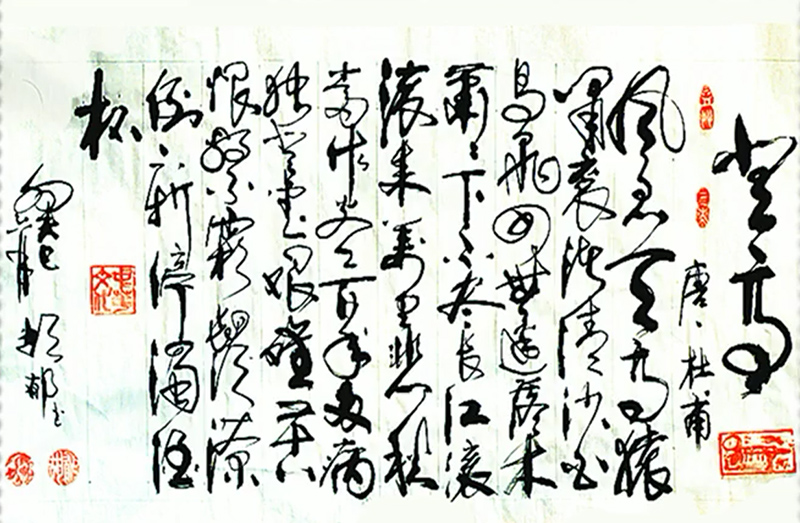 登高
唐 杜甫
风急天高猿
啸哀渚清沙白
鸟飞回无边落木
萧萧下不尽长江滚
滚来万里悲秋
常作客百年多病
独登台艰难苦
恨繁霜鬓潦
倒新停浊酒
杯